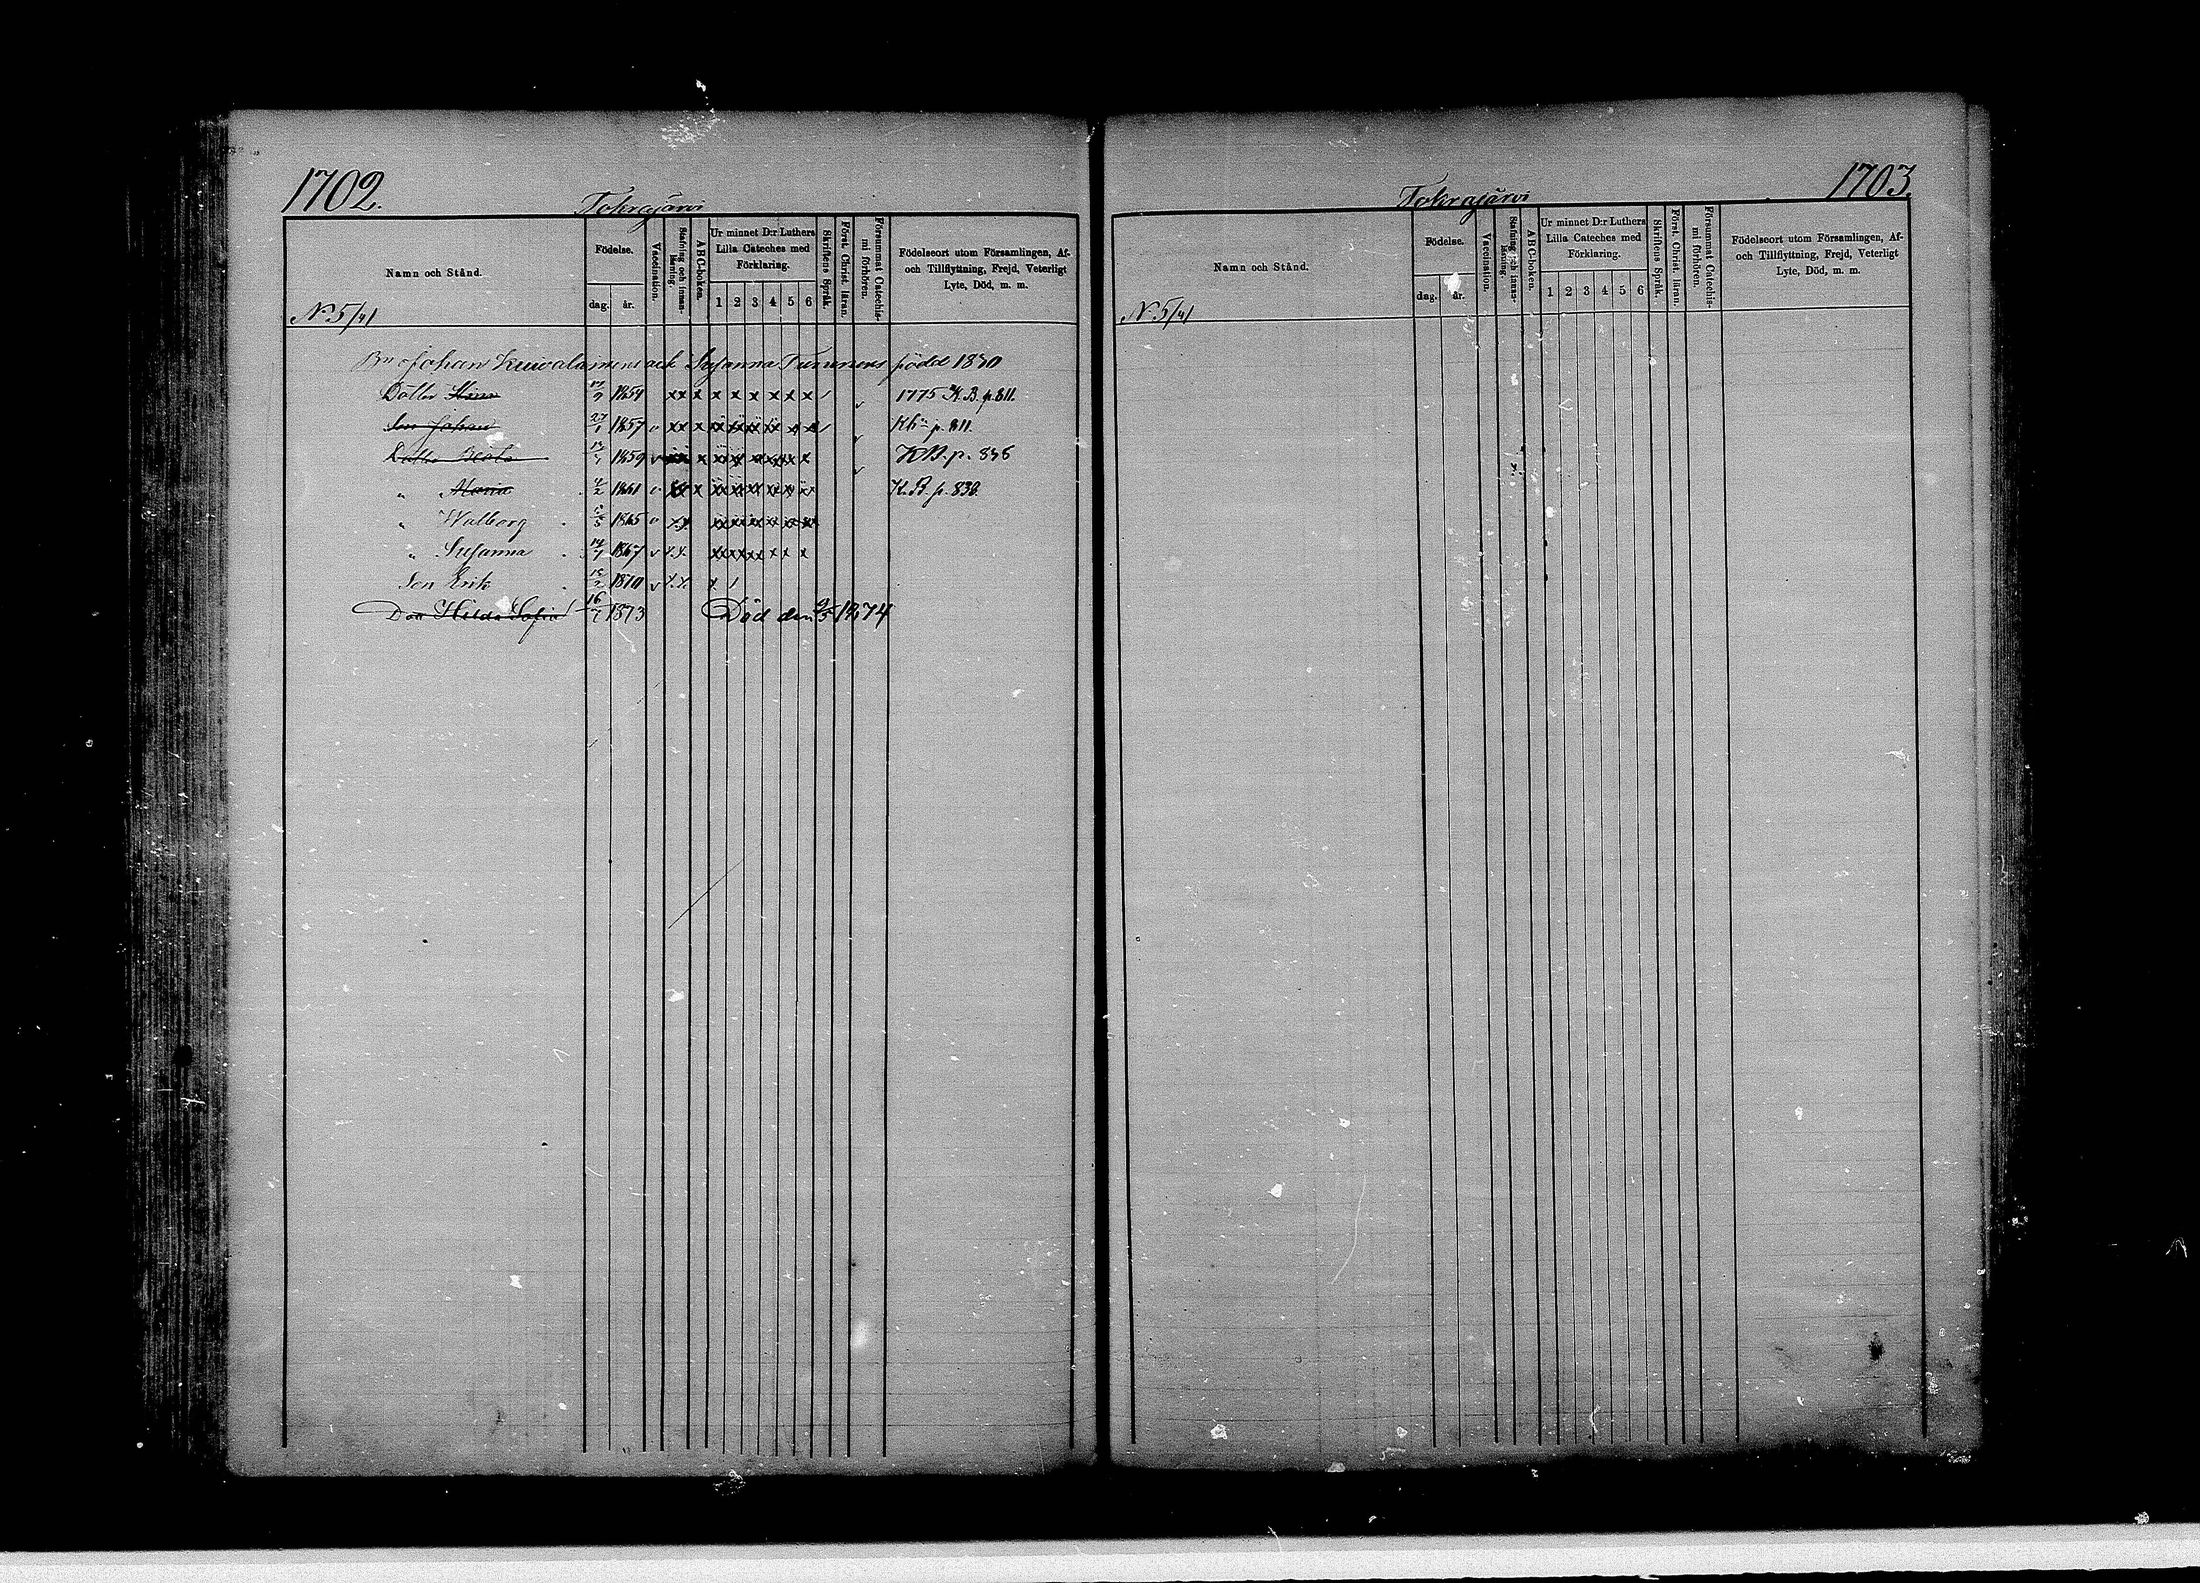 1702.
Tokrajärvi
Namn och Stånd.
Födelse.
dag.
år.
Vaccination.
Stafning och innan-läsning.
ABC-boken.
Ur minnet D:r Luthers Lilla Cateches med Förklaring.
1 2 3 4 5 6
Skriftens Språk.
Först. Christ. läran.
Försummat Catechis-mi förhören.
Födelseort utom Församlingen, Af- och Tillflyttning, Frejd, Veterligt Lyte, Död, m. m.
N:o 5/41
Bn Johan Kuivalainens ack Susanna Turunens född 1830
Dotter Stina 1854 xx x x x x x x x 1775 K.B. p. 811.
Son Johan 27/1 1857 xx x p. 811.
Dotter 1859 K.B. p. 836
" " Maria 4/2 1861 K.B. p. 830.
" Walborg 1865
" Susanna 1867
Son Erik 1870
Dott Hilda Sofia 16/7 1873 Död den 9/5 1874
1703.
Tokrajärvi
Namn och Stånd.
Födelse.
dag.
år.
Vaccination.
Stafning och innan-läsning.
ABC-boken.
Ur minnet D:r Luthers Lilla Cateches med Förklaring.
1 2 3 4 5 6
Skriftens Språk.
Först. Christ. läran.
Försummat Catechis-mi förhören.
Födelseort utom Församlingen, Af- och Tillflyttning, Frejd, Veterligt Lyte, Död, m. m.
N:o 5/41